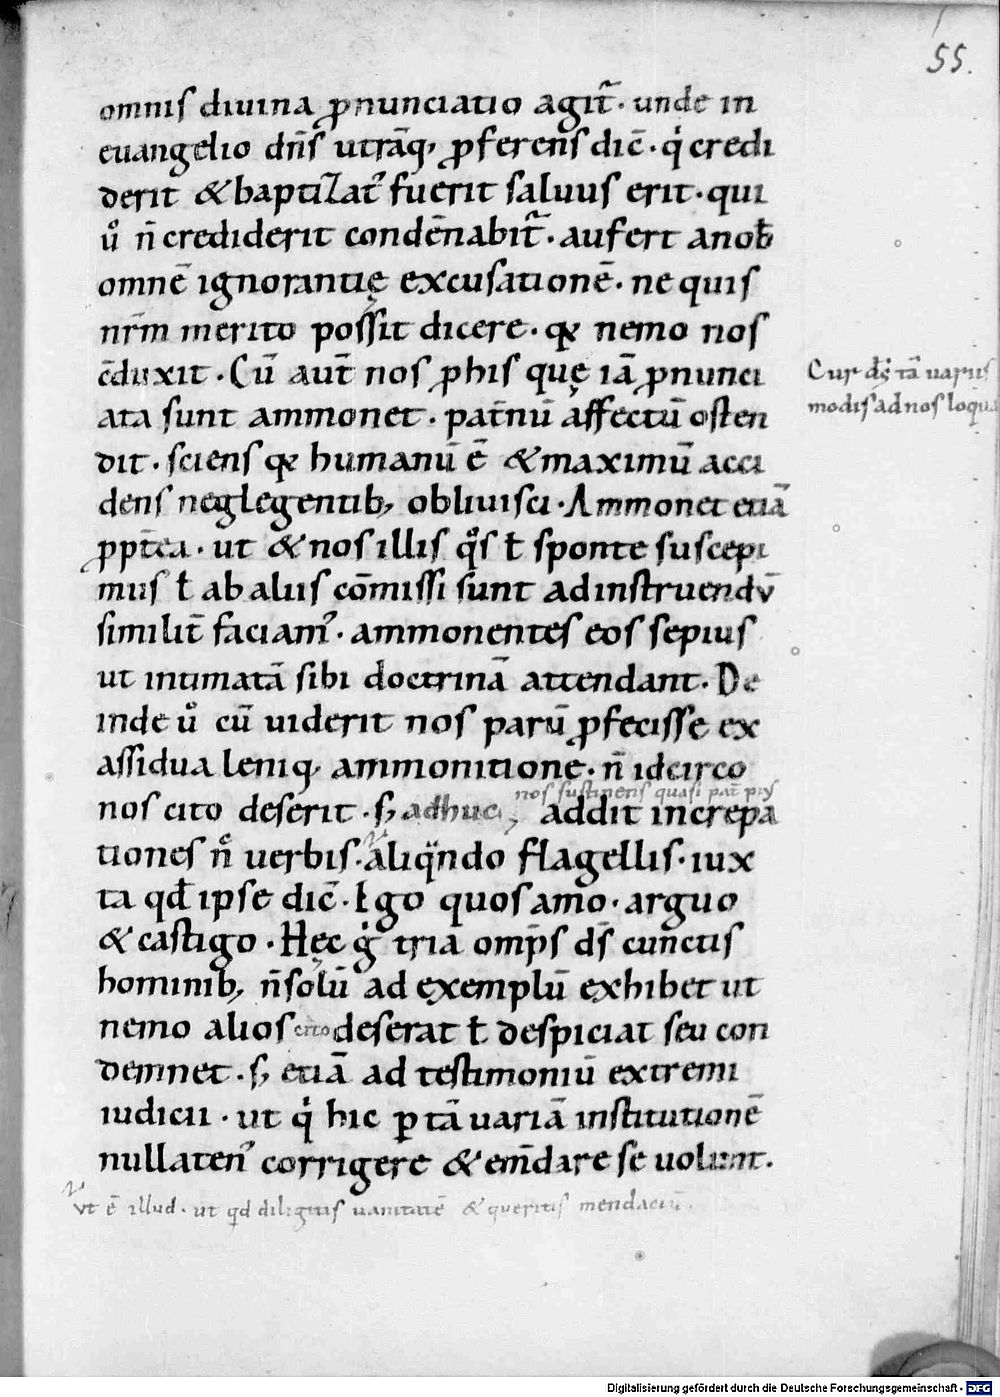 55.
omnis diuina ꝓnunciatio agit᷑. unde in
euangelio dn̄s utrāq; ꝓferens dic̄. qͥ credi
derit & baptizat᷑ fuerit saluus erit. qui
uͦ n̄ crediderit condēnabit᷑. aufert a nob̄
omnē ignorantię excusationē. ne quis
nr̄m merito possit dicere. qꝛ nemo nos
c̄duxit. Cū aut̄ nos ꝓ his quę iā ꝓnunci
ata sunt ammonet. pat̄nū affectū osten
dit. sciens qꝛ humanū ē & maximū acci
dens neglegentib; obliuisci. Ammonet etiā
ꝓpt̄ea. ut & nos illis qͦs ł sponte suscepi
mus ł ab aliis cōmissi sunt ad instruendū
similit̄ faciam᷑. ammonentes eos sepius
ut intimatā sibi doctrinā attendant. De
inde uͦ cū uiderit nos parū ꝓfecisse ex
assidua leniq; ammonitione. n̄ idcirco
nos sustinens quasi pat̄ pius
nos cito deserit. s; adhuc, addit increpa
tiones n̄ uerbis. aliqn̄do flagellis. iux
ta qd̄ ipse dic̄. Ego quos amo. arguo
& castigo. Hęc gͥ tria omp̄s ds̄ cunctis
hominib; n̄ solū ad exemplū exhibet ut
nemo alios cito deserat ł despiciat seu con
demnet. s; etiā ad testimoniū extremi
iudicii. ut qͥ hic ꝑ tā uariā institutionē
nullaten᷒ corrigere & em̄dare se uolunt.
Vt ē illud. ut qͥd diligitis uanitatē & queritis mendaciū.
Cur ds̄ tā uariis
modis ad nos loqua
Digitalisierung gefördert durch die Deutsche Forschungsgemeinschaft - DFG